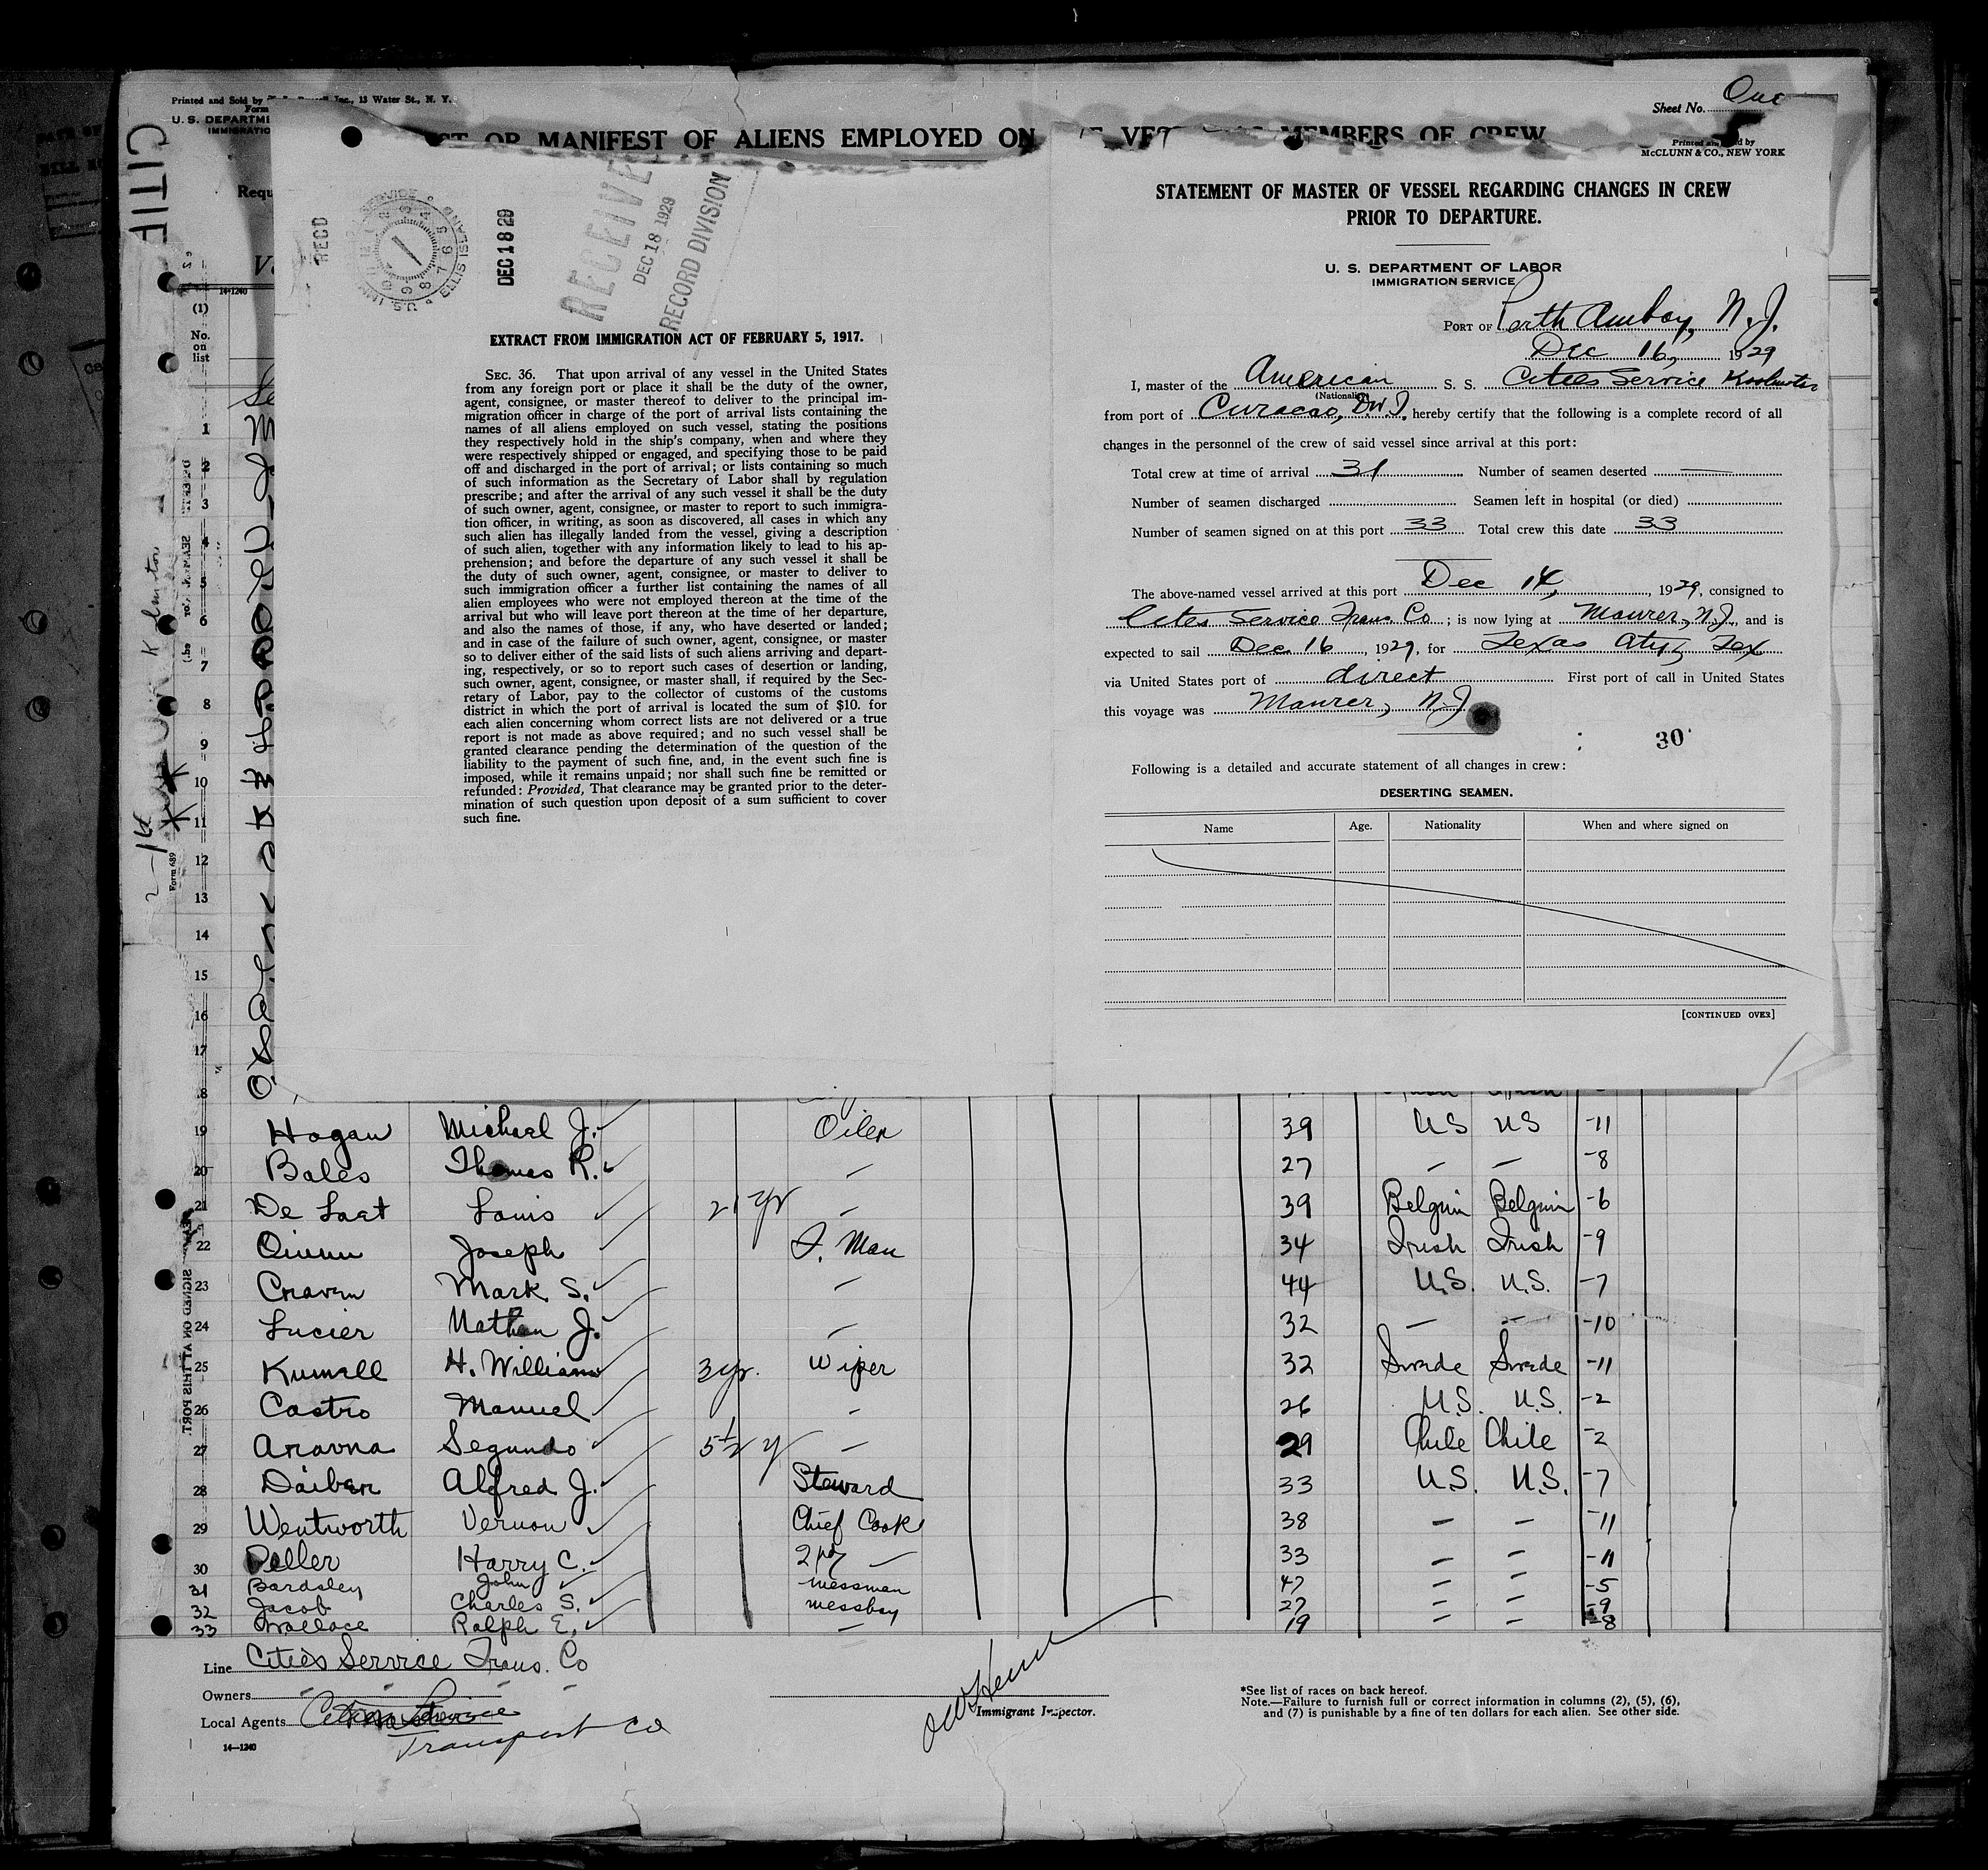 Printed and Sold by Inc., 13 Water St., N. Y.
Form
U. S. DEPARTM
IMMIGRATIO
Sheet No. One
OR MANIFEST OF ALIENS EMPLOYED ON MEMBERS OF CREW
Requ
CITIE
14-1240
(1)
No.
on
list
RECD
U.S. IMM. SERVICE ELLIS ISLAND
DEC 18 29
RECEIVE
DEC 18 1929
RECORD DIVISION
EXTRACT FROM IMMIGRATION ACT OF FEBRUARY 5, 1917.
SEC. 36. That upon arrival of any vessel in the United States
from any foreign port or place it shall be the duty of the owner,
agent, consignee, or master thereof to deliver to the principal im-
migration officer in charge of the port of arrival lists containing the
names of all aliens employed on such vessel, stating the positions
they respectively hold in the ship's company, when and where they
were respectively shipped or engaged, and specifying those to be paid
off and discharged in the port of arrival; or lists containing so much
of such information as the Secretary of Labor shall by regulation
prescribe; and after the arrival of any such vessel it shall be the duty
of such owner, agent, consignee, or master to report to such immigra-
tion officer, in writing, as soon as discovered, all cases in which any
such alien has illegally landed from the vessel, giving a description
of such alien, together with any information likely to lead to his ap-
prehension; and before the departure of any such vessel it shall be
the duty of such owner, agent, consignee, or master to deliver to
such immigration officer a further list containing the names of all
alien employees who were not employed thereon at the time of the
arrival but who will leave port thereon at the time of her departure,
and also the names of those, if any, who have deserted or landed;
and in case of the failure of such owner, agent, consignee, or master
so to deliver either of the said lists of such aliens arriving and depart-
ing, respectively, or so to report such cases of desertion or landing,
such owner, agent, consignee, or master shall, if required by the Sec-
retary of Labor, pay to the collector of customs of the customs
district in which the port of arrival is located the sum of $10. for
each alien concerning whom correct lists are not delivered or a true
report is not made as above required; and no such vessel shall be
granted clearance pending the determination of the question of the
liability to the payment of such fine, and, in the event such fine is
imposed, while it remains unpaid; nor shall such fine be remitted or
refunded: Provided, That clearance may be granted prior to the deter-
mination of such question upon deposit of a sum sufficient to cover
such fine.
Printed and by
McCLUNN & CO., NEW YORK
STATEMENT OF MASTER OF VESSEL REGARDING CHANGES IN CREW
PRIOR TO DEPARTURE.
U. S. DEPARTMENT OF LABOR
IMMIGRATION SERVICE
PORT OF Perth Amboy, N. J.
Dec 16, 1929
I, master of the American S. S. Cities Service Koolmotor
(Nationality)
from port of Curacao, D.W.I. hereby certify that the following is a complete record of all
changes in the personnel of the crew of said vessel since arrival at this port:
Total crew at time of arrival 31 Number of seamen deserted —
Number of seamen discharged Seamen left in hospital (or died)
Number of seamen signed on at this port 33 Total crew this date 33
The above-named vessel arrived at this port Dec 14, 1929, consigned to
Cites Service Trans Co; is now lying at Maurer, N.J., and is
expected to sail Dec. 16, 1929, for Texas City, Tex
via United States port of direct First port of call in United States
this voyage was Maurer, N.J.
30
Following is a detailed and accurate statement of all changes in crew:
DESERTING SEAMEN.
Name Age. Nationality When and where signed on
[CONTINUED OVER]
Form 689
1
2
3
4
5
6
7
8
9
10
11
12
13
14
15
16
17
8
19 Hogan Michael J. Oiler 39 US US -11
20 Bales Thomas R. — 27 — — -8
21 De Laet Louis 21 yr — 39 Belgium Belgium -6
22 Quinn Joseph F. Man 34 Irish Irish -9
23 Craven Mark S. — 44 U.S. U.S. -7
24 Lucier Nathan J. — 32 — — -10
25 Kumell H. William 3 yr. Wiper 32 Swede Swede -11
26 Castro Manuel — 26 U.S. U.S. -2
27 Aravna Segundo 5½ y — 29 Chile Chile -2
28 Daiber Alfred J. Steward 33 U.S. U.S. -7
29 Wentworth Vernon Chief Cook 38 — — -11
30 Peller Harry C. 2nd — 33 — — -11
31 Bardsley John messman 47 — — -5
32 Jacob Charles S. messboy 27 — — -9
33 Wallace Ralph E. — 19 — — -8
SIGNED ON AT THIS PORT.
Line Cities Service Trans. Co
Owners " " "
Local Agents Cities Service
Transport Co
14—1240
Immigrant Inspector.
*See list of races on back hereof.
Note.—Failure to furnish full or correct information in columns (2), (5), (6),
and (7) is punishable by a fine of ten dollars for each alien. See other side.